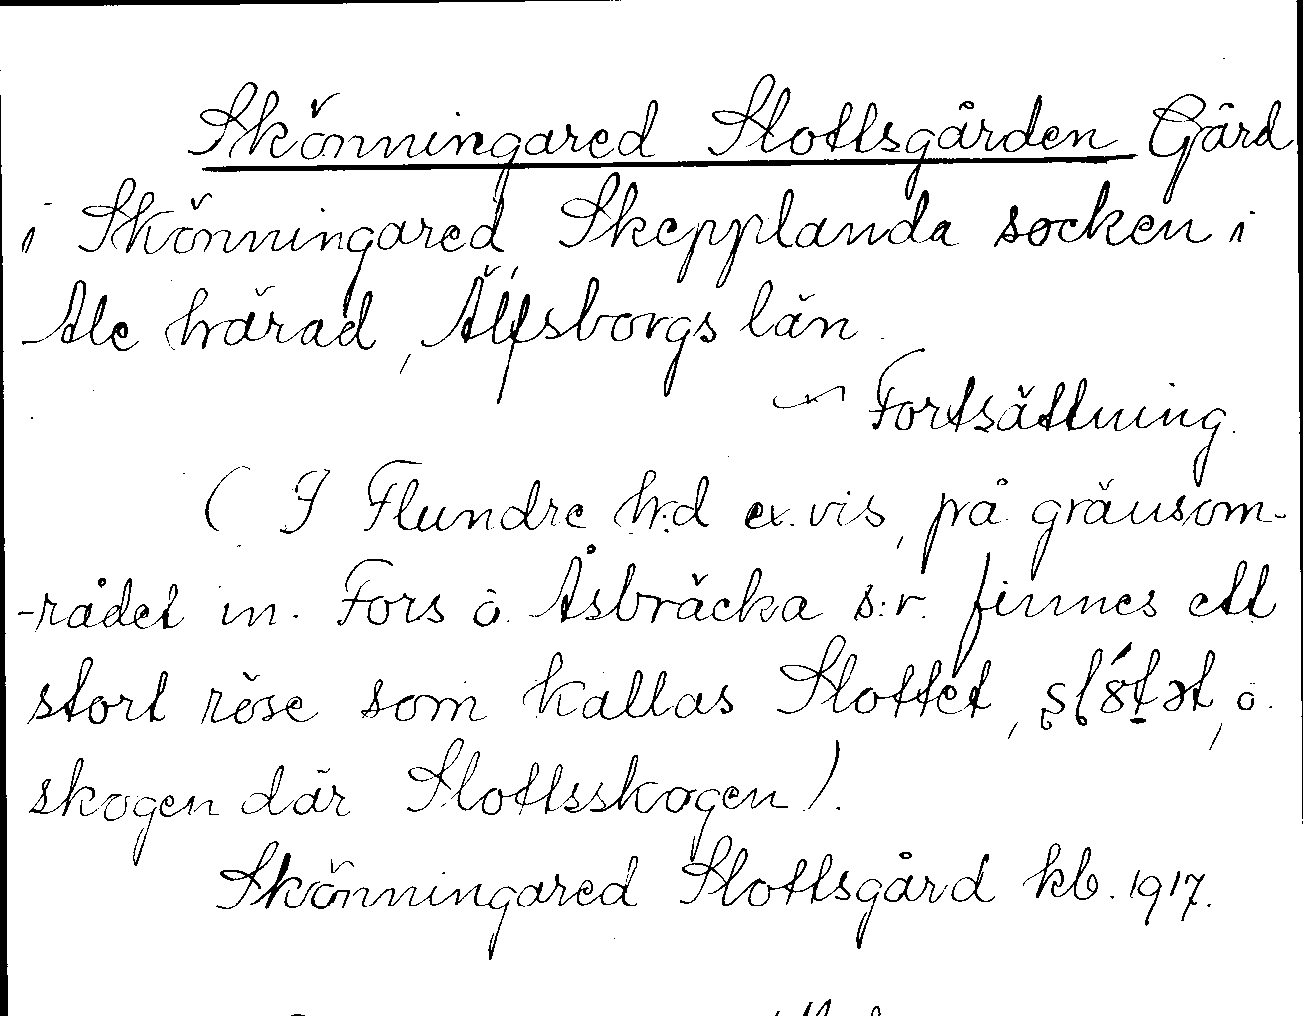 Skönningared Slottsgården Gård
i Skönningared Skepplanda socken i
Ale härad, Älfsborgs län.
Fortsättning.
( I Flundre h:d ex. vis, på gränsom-
-rådet m. Fors o. Åsbräcka s:r. finnes ett
stort röse som kallas Slottet, o.
skogen där Slottsskogen).
Skönningared Slottsgård kb. 1917.